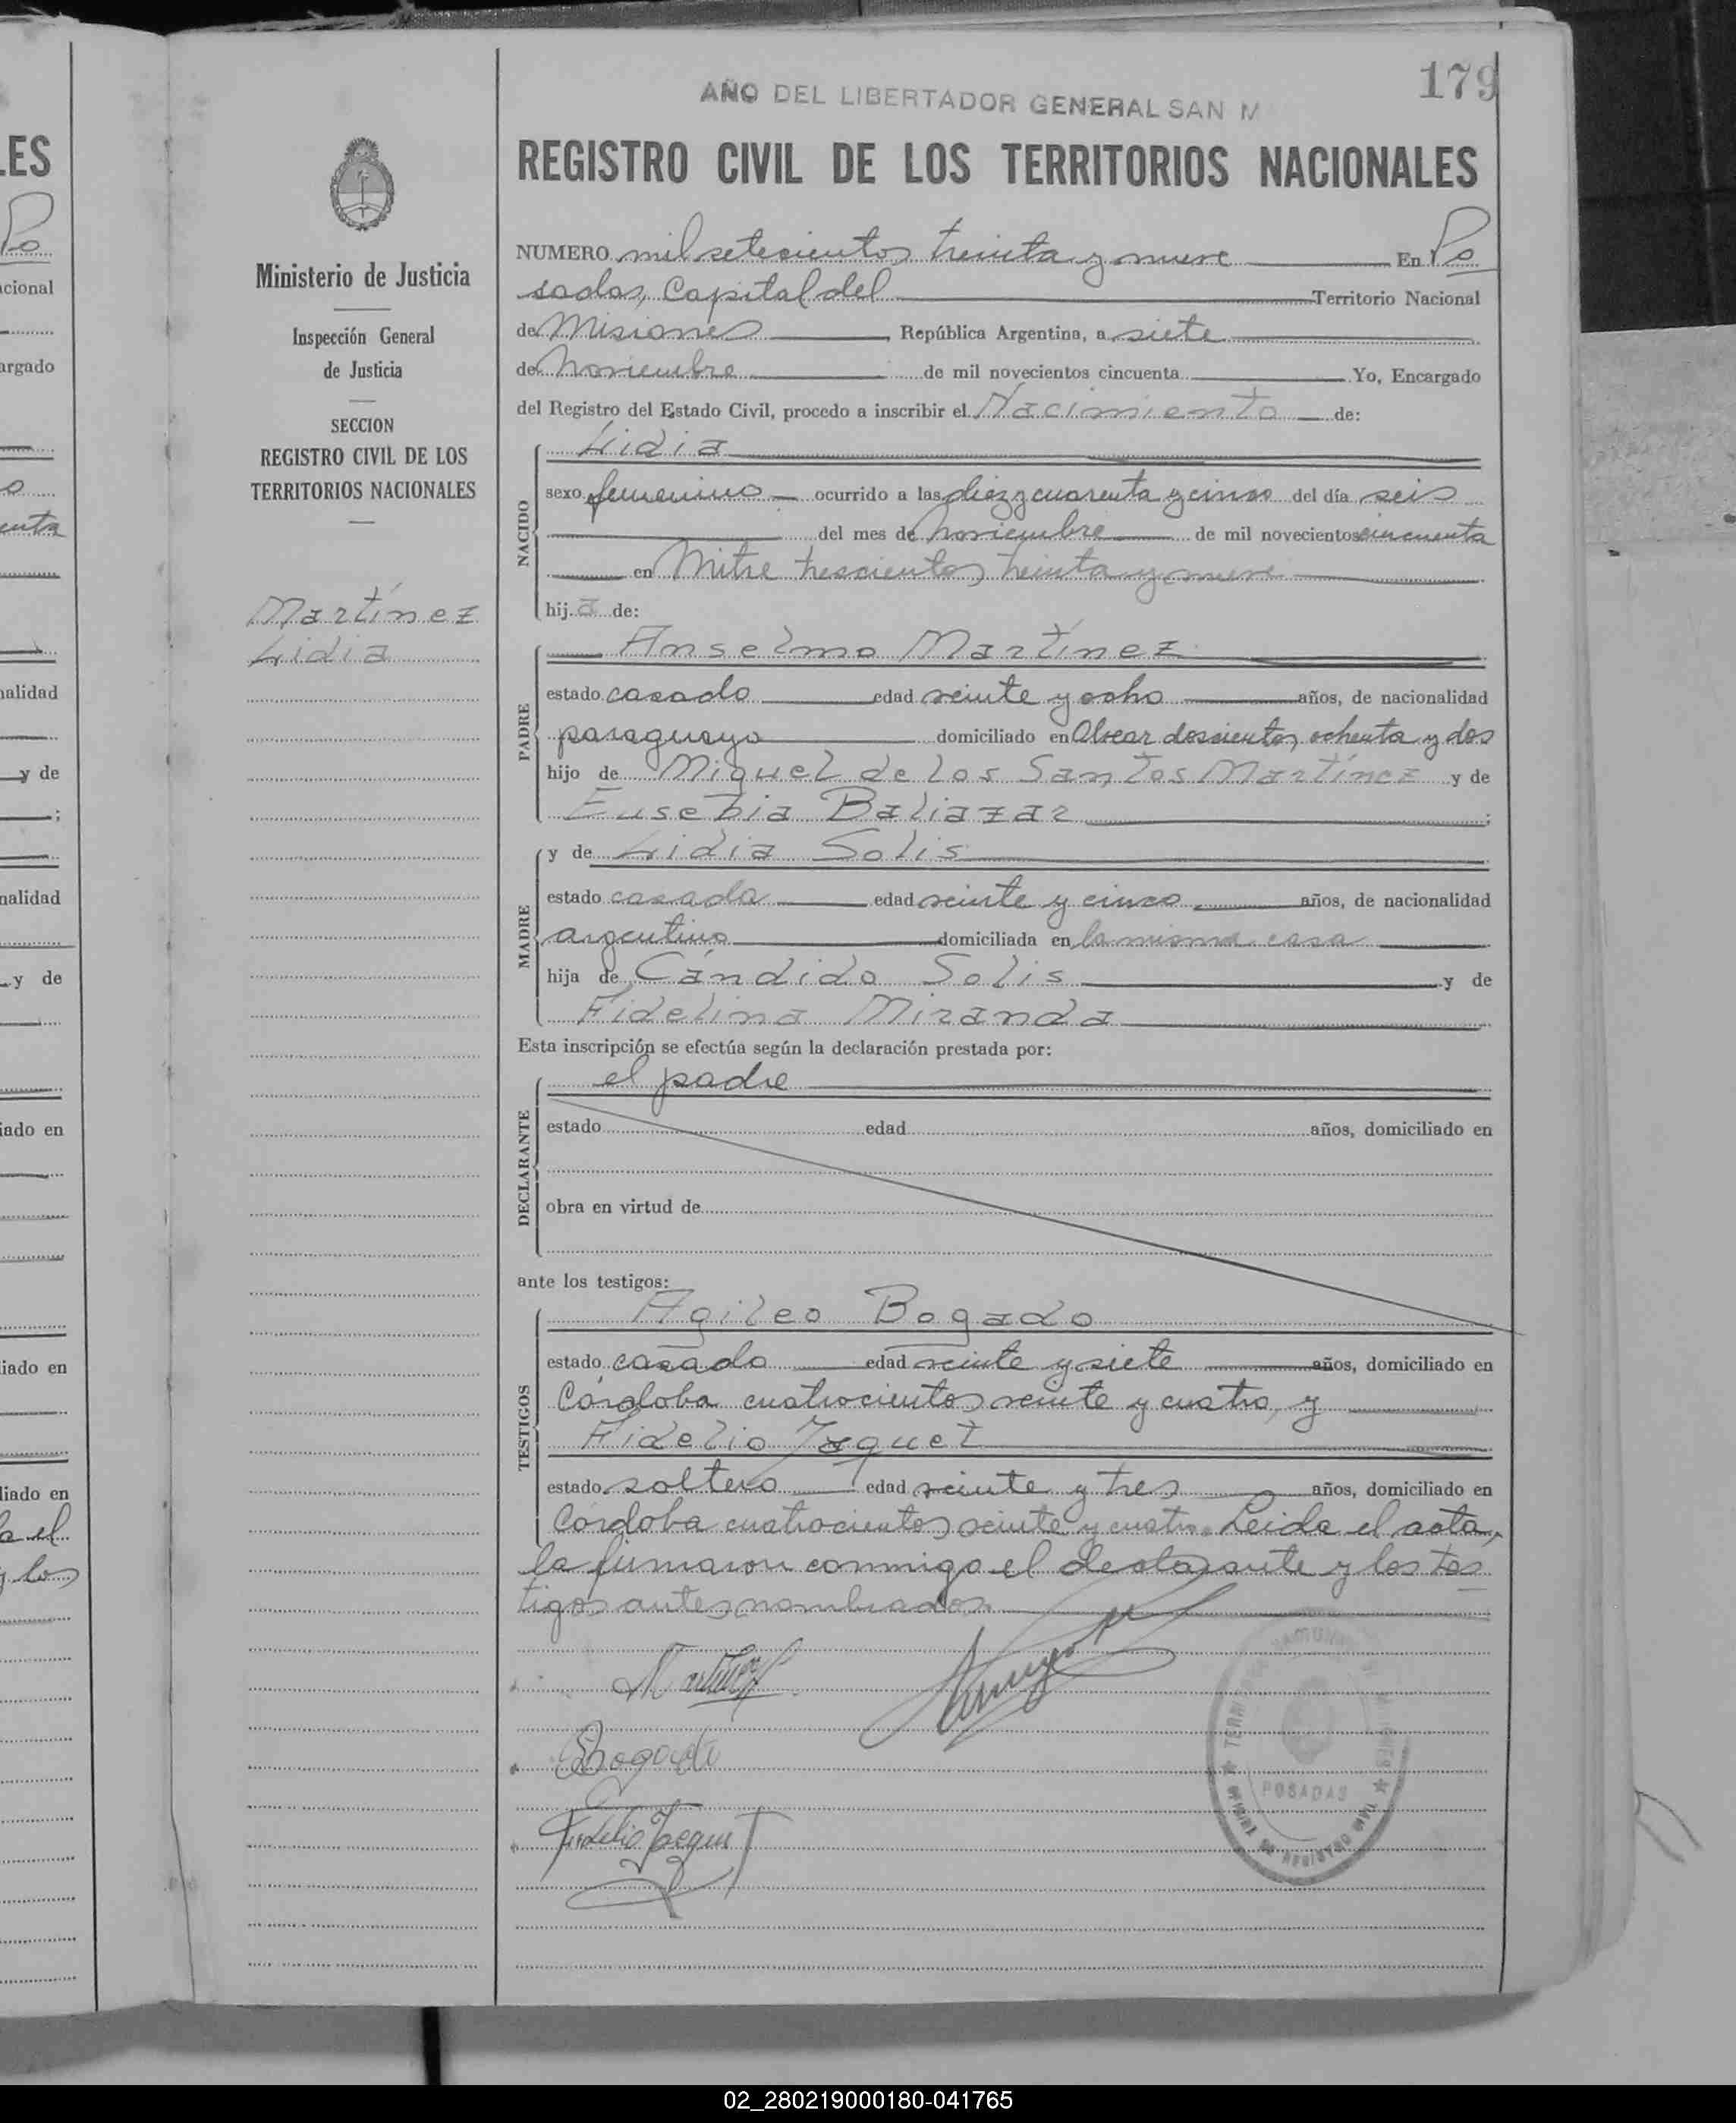 179
AÑO DEL LIBERTADOR GENERAL SAN M
REGISTRO CIVIL DE LOS TERRITORIOS NACIONALES
Ministerio de Justicia
Inspección General
de Justicia
SECCION
REGISTRO CIVIL DE LOS
TERRITORIOS NACIONALES
Martínez
Lidia
NUMERO mil setecientos treinta y nueve En Po
sadas, Capital del Territorio Nacional
de Misiones, República Argentina, a siete
de Noviembre de mil novecientos cincuenta Yo, Encargado
del Registro del Estado Civil, procedo a inscribir el Nacimiento de:
NACIDO
Lidia
sexo femenino ocurrido a las diez y cuarenta y cinco del día seis
del mes de Noviembre de mil novecientos cincuenta
en Mitre trescientos treinta y nueve
hija de:
PADRE
Anselmo Martínez
estado casado edad veinte y ocho años, de nacionalidad
paraguayo domiciliado en Alvear doscientos ochenta y dos
hijo de Miguel de los Santos Martínez y de
Eusebia Baliazar;
MADRE
y de Lidia Solis
estado casada edad veinte y cinco años, de nacionalidad
argentino domiciliada en la misma casa
hija de Cándido Solis y de
Fidelina Miranda
Esta inscripción se efectúa según la declaración prestada por:
DECLARANTE
el padre
estado edad años, domiciliado en
obra en virtud de
ante los testigos:
TESTIGOS
Agileo Bogado
estado casado edad veinte y siete años, domiciliado en
Córdoba cuatrocientos veinte y cuatro, y
Fidelio Jaquet
estado soltero edad veinte y tres años, domiciliado en
Córdoba cuatrocientos veinte y cuatro. Leida el acta,
la firmaron conmigo el declarante y los tes
tigos antes nombrados.
Martínez
Bogado
Fidelio Jaquet
POSADAS
02_280219000180-041765